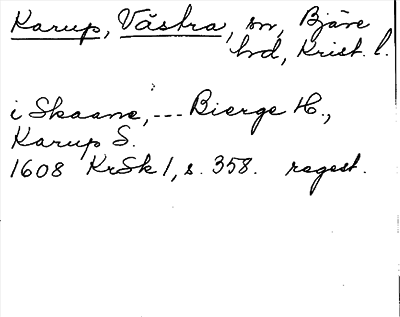 Karup, Västra, sn, Bjäre
hrd, Krist. l.
i Skaane, --- Bierge H.,
Karup S.
1608 KrSk 1, s. 358. regest.